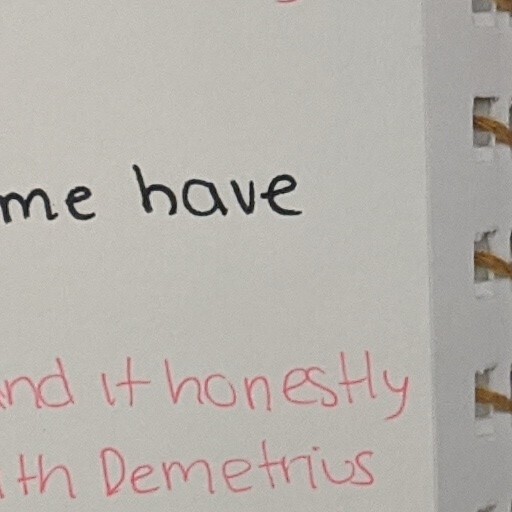 me have
nd it honestly
th Demetrius